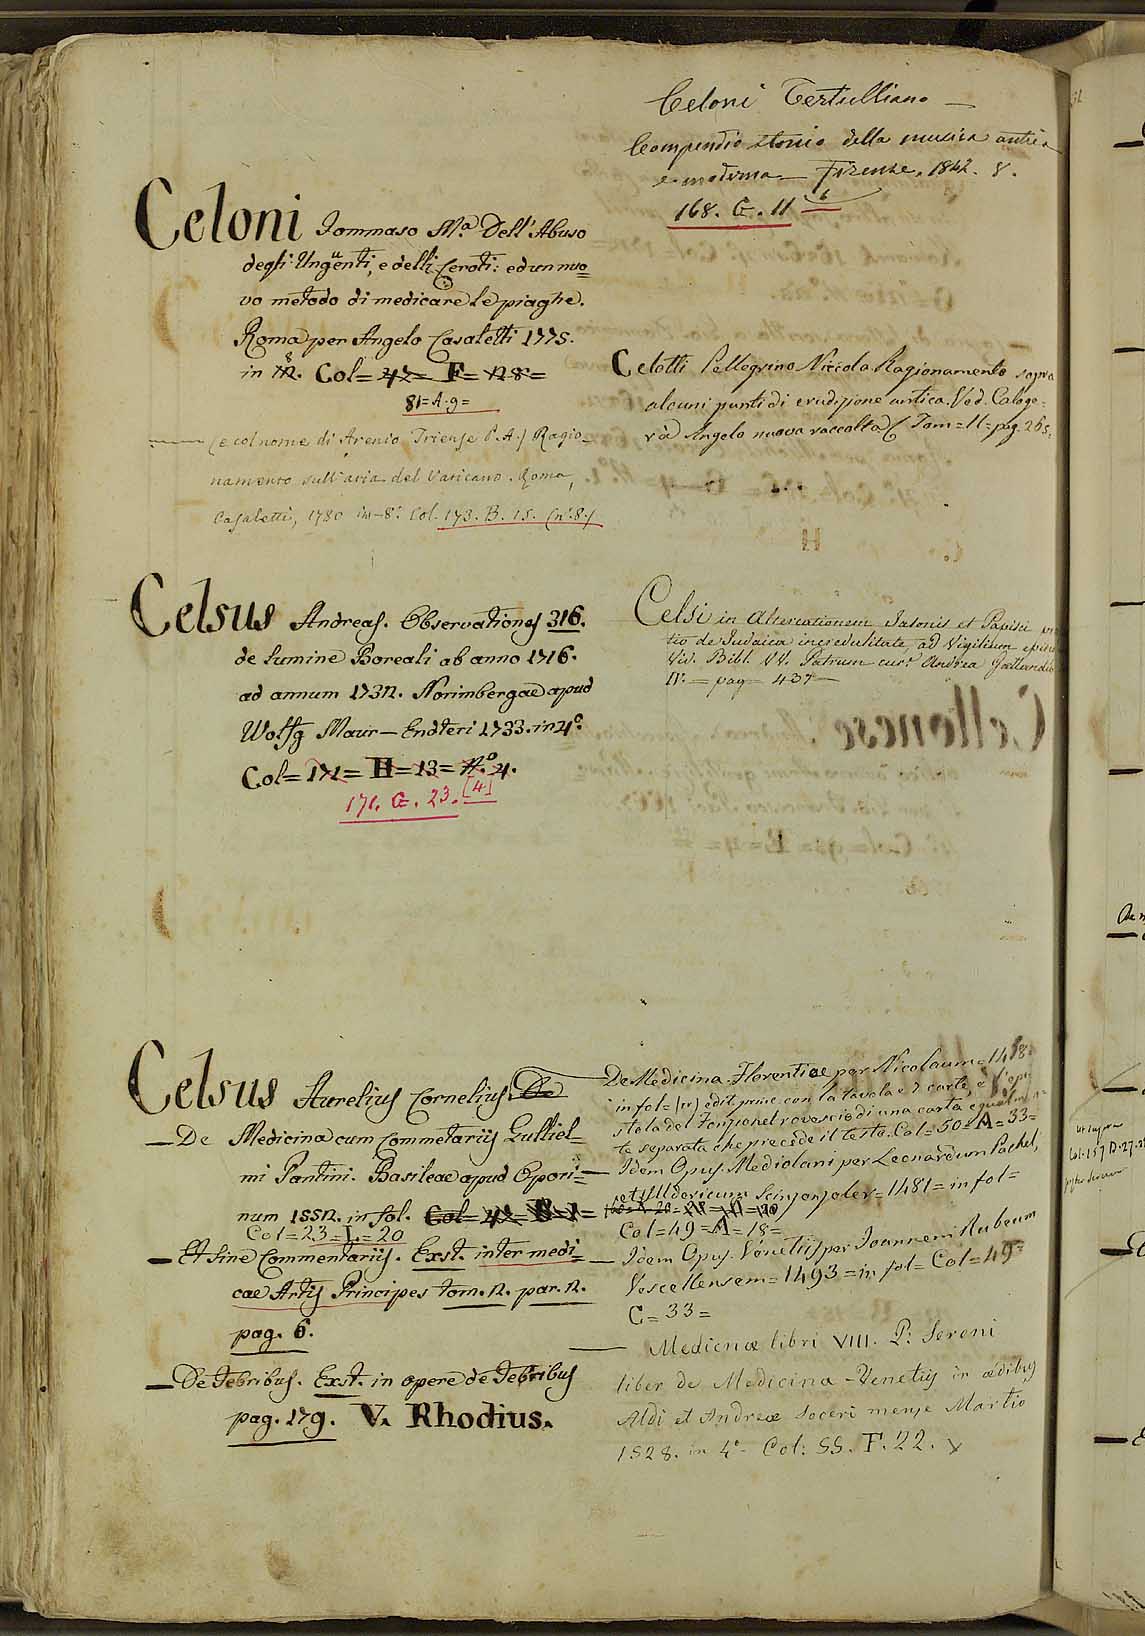 Celoni Tertulliano —
Compendio storico della musica antica
e moderna — Firenze, 1842. 8.
168. G. 11 6
Celoni Tommaso Mª Dell'Abuso
degli Unguenti, e delli Ceroti: ed un nuo=
vo metodo di medicare le piaghe.
Roma per Angelo Casaletti 1775.
in 8. Col= 47= F= 12.8=
81=A.9=
(e col nome di Arenio Triense P.A.) Ragio=
namento sull'aria del Vaticano. Roma,
Casaletti, 1780 in-8º. Col. 173. B. 15. (nº.8.)
Celotti Pellegrino Niccola Ragionamento sopra
alcuni punti di erudizione antica. Ved. Caloge=
rà Angelo nuova raccolta Tom=11=pag. 265.
Celsus Andreas. Observationes 316.
de Lumine Boreali ab anno 1716.
ad annum 1732. Norimbergae apud
Wolfg Maur— Endteri 1733. in 4º.
Col= 171= H=13= Nº 4.
171. G. 23. [4]
Celsi in Altercationem Jasonis et Papisci
tio de Judaica incredulitate, ad Vigilium
Vid. Bibl. VV. Patrum curª Andrea Gallandio
— pag— 437—
Celsus Aurelius Cornelius. De
—De Medicina cum Commetariis Gulliel=
mi Pantini. Basileae apud Opori=
num 1552. in fol. Col= 42= 8=1=
Col=23=L=20
—Et sine Commentariis. Exst. inter medi=
cae Artis Principes tom. 2. par. 2.
pag. 6.
—De Febribus. Exst. in opere de Febribus
pag. 179. V. Rhodius.
De Medicina. Florentiae per Nicolaum=1478.
in fol= (rr) edit. princ. con la tavola e 7 carte, e l'epi
stola del Fonzio nel rovescio di una carta egualmen
te separata che precede il testo. Col=50=A=33=
— Idem Opus. Mediolani per Leonardum Pachel,
et Uldericum Scinzenzeler=1481=in fol=
Col=49=A=18=
— Idem Opus. Venetiis per Joannem Rubeum
Vercellensem=1493=in fol= Col=49=
C=33=
— Medicinæ libri VIII. Q: Sereni
liber de Medicina - Venetiis in ædibus
Aldi et Andreæ Soceri mense Martio
1528. in 4º- Col: 55. F. 22.